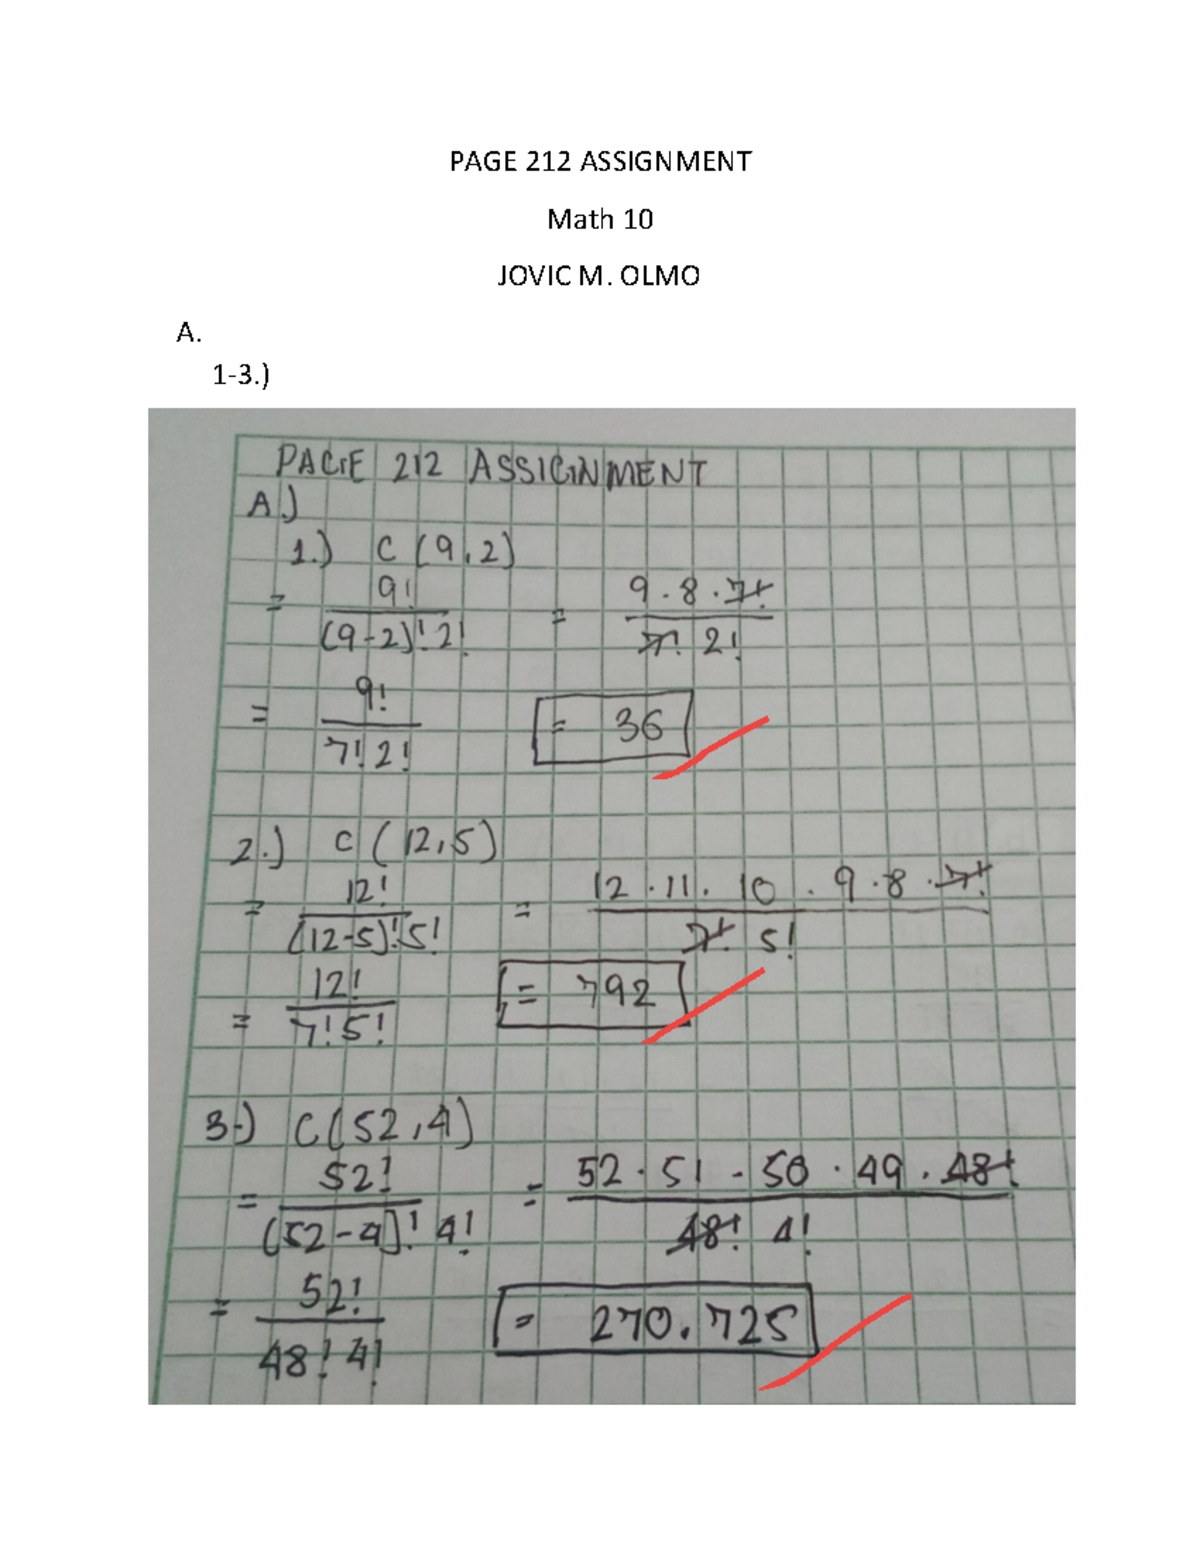 PAGE 212 ASSIGNMENT
Math 10
JOVIC M. OLMO
A.
1-3.)
PAGE 212 ASSIGNMENT
A.)
1.) C (9,2)
= 9! / (9-2)! 2! = 9 · 8 · 7! / 7! 2!
= 9! / 7! 2! = 36
2.) C (12,5)
= 12! / (12-5)! 5! = 12 · 11 · 10 · 9 · 8 · 7! / 7! 5!
= 12! / 7! 5! = 792
3.) C (52,4)
= 52! / (52-4)! 4! = 52 · 51 · 50 · 49 · 48! / 48! 4!
= 52! / 48! 4! = 270.725